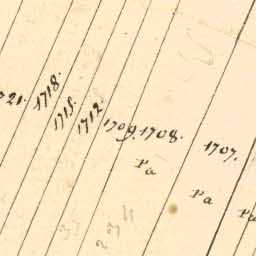 721.
1718.
1715.
1712.
1709.
1708.
1707.
Pa
Pa
Pa